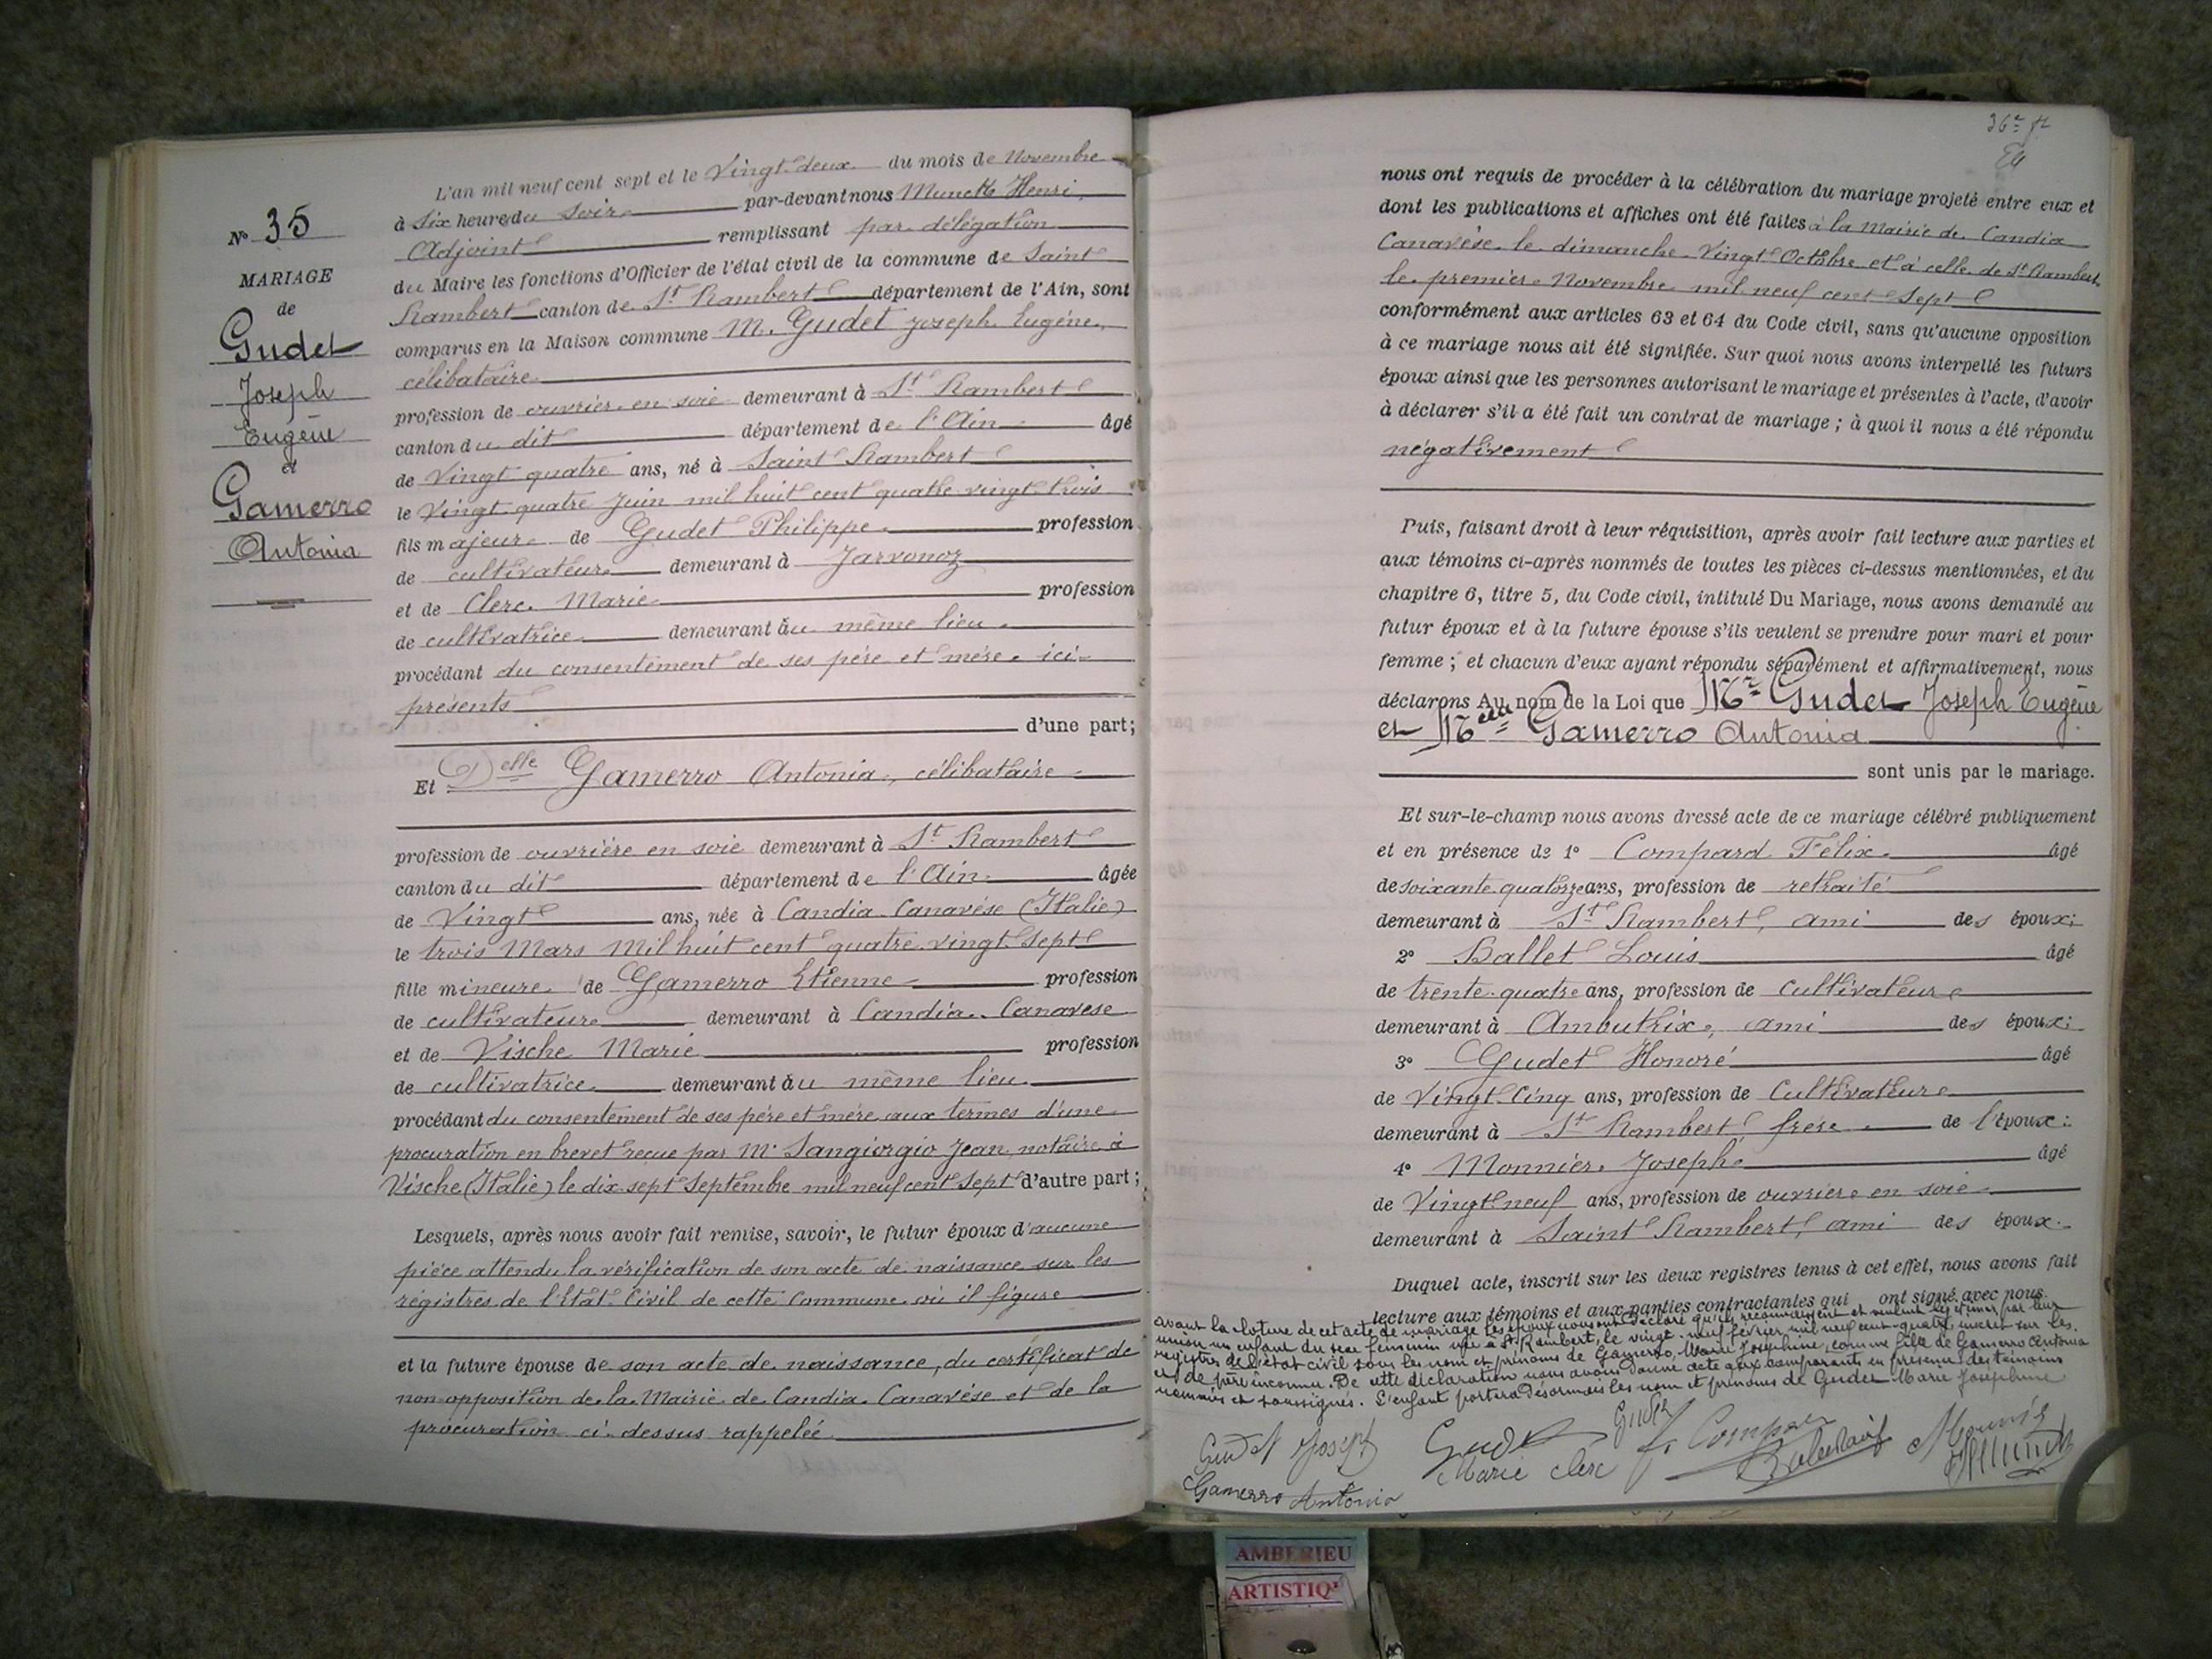 N° 35
MARIAGE
de
Gudet
Joseph
Eugène
et
Gamerro
Antonia
L'an mil neuf cent sept et le Vingt deux du mois de Novembre
à six heure du soir par-devant nous Munck Henri,
Adjoint remplissant par délégation
du Maire les fonctions d'Officier de l'état civil de la commune de Saint
Rambert canton de St Rambert département de l'Ain, sont
comparus en la Maison commune M. Gudet Joseph Eugène,
célibataire
profession de ouvrier en soie demeurant à St Rambert
canton du dit département de l'Ain âgé
de Vingt quatre ans, né à Saint Rambert
le Vingt quatre Juin mil huit cent quatre vingt trois
fils majeur de Gudet Philippe profession
de cultivateur demeurant à Javornoz
et de Clerc Marie profession
de cultivatrice demeurant au même lieu
procédant du consentement de ses père et mère ici
présents
d'une part;
Et Delle Gamerro Antonia, célibataire
profession de ouvrière en soie demeurant à St Rambert
canton du dit département de l'Ain âgée
de Vingt ans, née à Candia Canavèse (Italie)
le trois Mars Mil huit cent quatre vingt sept
fille mineure de Gamerro Etienne profession
de cultivateur demeurant à Candia Canavese
et de Vische Marie profession
de cultivatrice demeurant au même lieu
procédant du consentement de ses père et mère aux termes d'une
procuration en brevet reçue par Me Sangiorgio Jean, notaire à
Vische (Italie) le dix sept Septembre mil neuf cent sept d'autre part;
Lesquels, après nous avoir fait remise, savoir, le futur époux d'aucune
pièce attendu la vérification de son acte de naissance sur les
régistres de l'Etat Civil de cette Commune où il figure
et la future épouse de son acte de naissance, du certificat de
non-opposition de la Mairie de Candia Canavèse et de la
procuration ci-dessus rappelée
36e ft
nous ont requis de procéder à la célébration du mariage projeté entre eux et
dont les publications et affiches ont été faites à la Mairie de Candia
Canavèse le dimanche Vingt Octobre et à celle de St Rambert
le premier Novembre mil neuf cent sept
conformément aux articles 63 et 64 du Code civil, sans qu'aucune opposition
à ce mariage nous ait été signifiée. Sur quoi nous avons interpellé les futurs
époux ainsi que les personnes autorisant le mariage et présentes à l'acte, d'avoir
à déclarer s'il a été fait un contrat de mariage ; à quoi il nous a été répondu
négativement
Puis, faisant droit à leur réquisition, après avoir fait lecture aux parties et
aux témoins ci-après nommés de toutes les pièces ci-dessus mentionnées, et du
chapitre 6, titre 5, du Code civil, intitulé Du Mariage, nous avons demandé au
futur époux et à la future épouse s'ils veulent se prendre pour mari et pour
femme ; et chacun d'eux ayant répondu séparément et affirmativement, nous
déclarons Au nom de la Loi que Mr Gudet Joseph Eugène
et Melle Gamerro Antonia
sont unis par le mariage.
Et sur-le-champ nous avons dressé acte de ce mariage célébré publiquement
et en présence de 1° Compard Félix âgé
de soixante quatorze ans, profession de retraité
demeurant à St Rambert, ami des époux;
2° Ballet Louis âgé
de trente quatre ans, profession de Cultivateur
demeurant à Ambutrix, ami des époux;
3° Gudet Honoré âgé
de Vingt Cinq ans, profession de Cultivateur
demeurant à St Rambert frère de l'époux:
4° Monnier Joseph âgé
de Vingt neuf ans, profession de ouvrier en soie
demeurant à Saint Rambert, ami des époux.
Duquel acte, inscrit sur les deux registres tenus à cet effet, nous avons fait
lecture aux témoins et aux parties contractantes qui ont signé avec nous.
avant la cloture de cet acte de mariage les époux nous ont déclaré qu'ils reconnaissent et veulent légitimer par leur
union un enfant du sexe féminin née à St Rambert, le vingt-neuf février mil neuf cent quatre, inscrit sur les
registres de l'état civil sous les nom et prénoms de Gamerro, Marie Joséphine, comme fille de Gamerro Antonia
et de père inconnu. De cette déclaration nous avons donné acte aux comparants en présence des témoins
nommés et soussignés. L'enfant portera désormais les nom et prénoms de Gudet Marie Joséphine
Gudet Joseph
Gudet
Gudet
F. Compar
Marie clerc
Gamerro Antonia
AMBERIEU
ARTISTIQ'